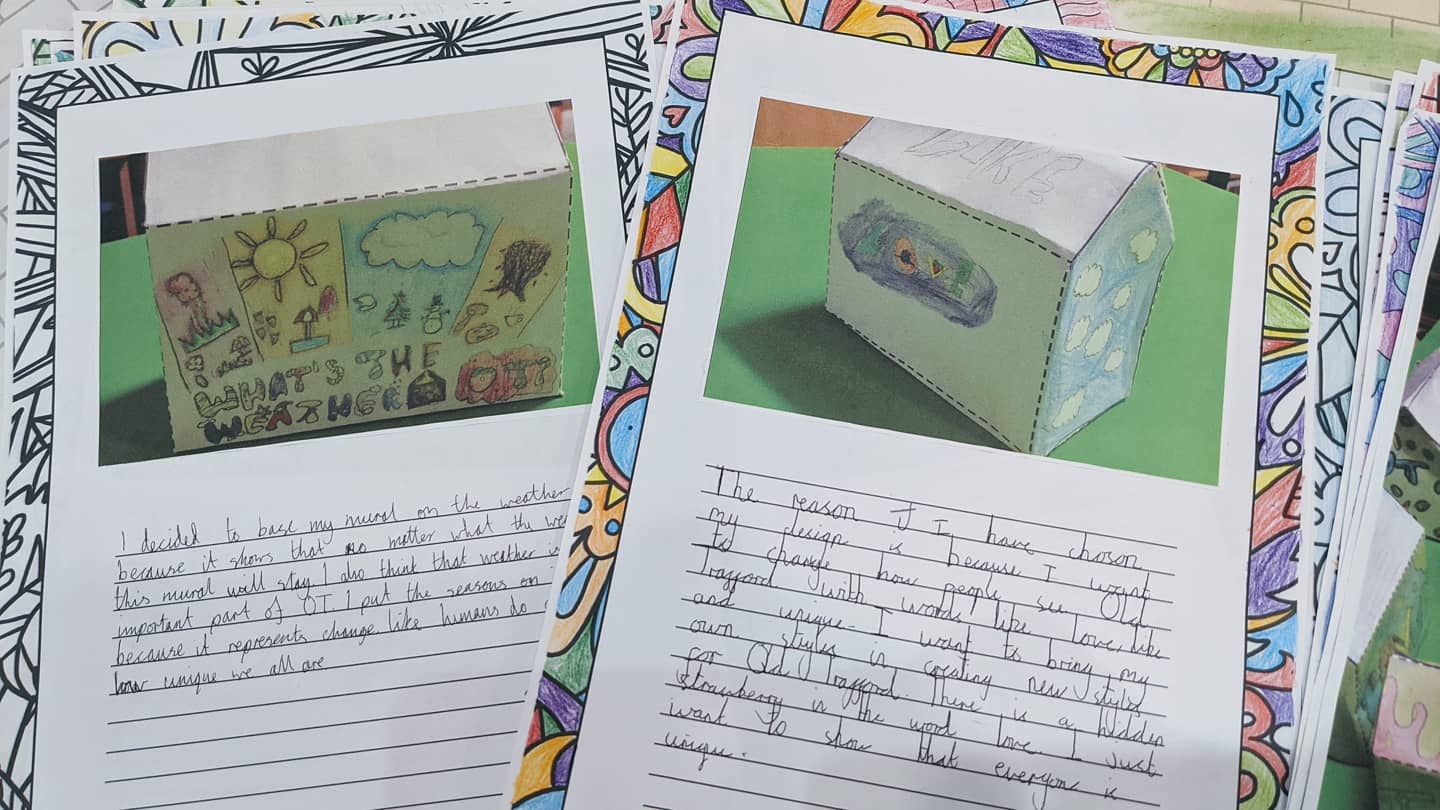 WHAT'S THE
WEATHER OTT
I decided to base my mural on the weather
because it shows that no matter what the
this mural will stay. I also think that weather
important part of OT. I put the reasons on
because it represents change like humans do
how unique we all are
LOVE
The reason I I have choson
my design is because I want
to change how people see Old
Traggord with words like love, like
and unique. I want to bring my
own styles in creating new styles
for Old Traggord. There is a hidden
strawberry in the word love. I just
want to show that everyone is
unique.